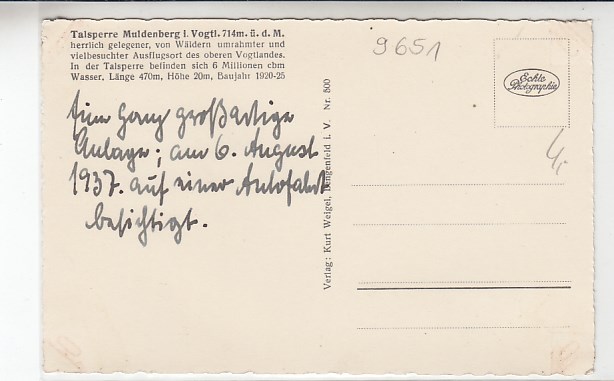 Talsperre Muldenberg i. Vogtl. 714m. ü. d. M.
herrlich gelegener, von Wäldern umrahmter und
vielbesuchter Ausflugsort des oberen Vogtlandes.
In der Talsperre befinden sich 6 Millionen cbm
Wasser, Länge 470m, Höhe 20m, Baujahr 1920-25
9651
Echte
Photographie
Eine ganz großartige
Anlage; am 6. August
1937. auf einer Autofahrt
besichtigt.
Verlag: Kurt Weigel, Lengenfeld i. V. Nr. 800